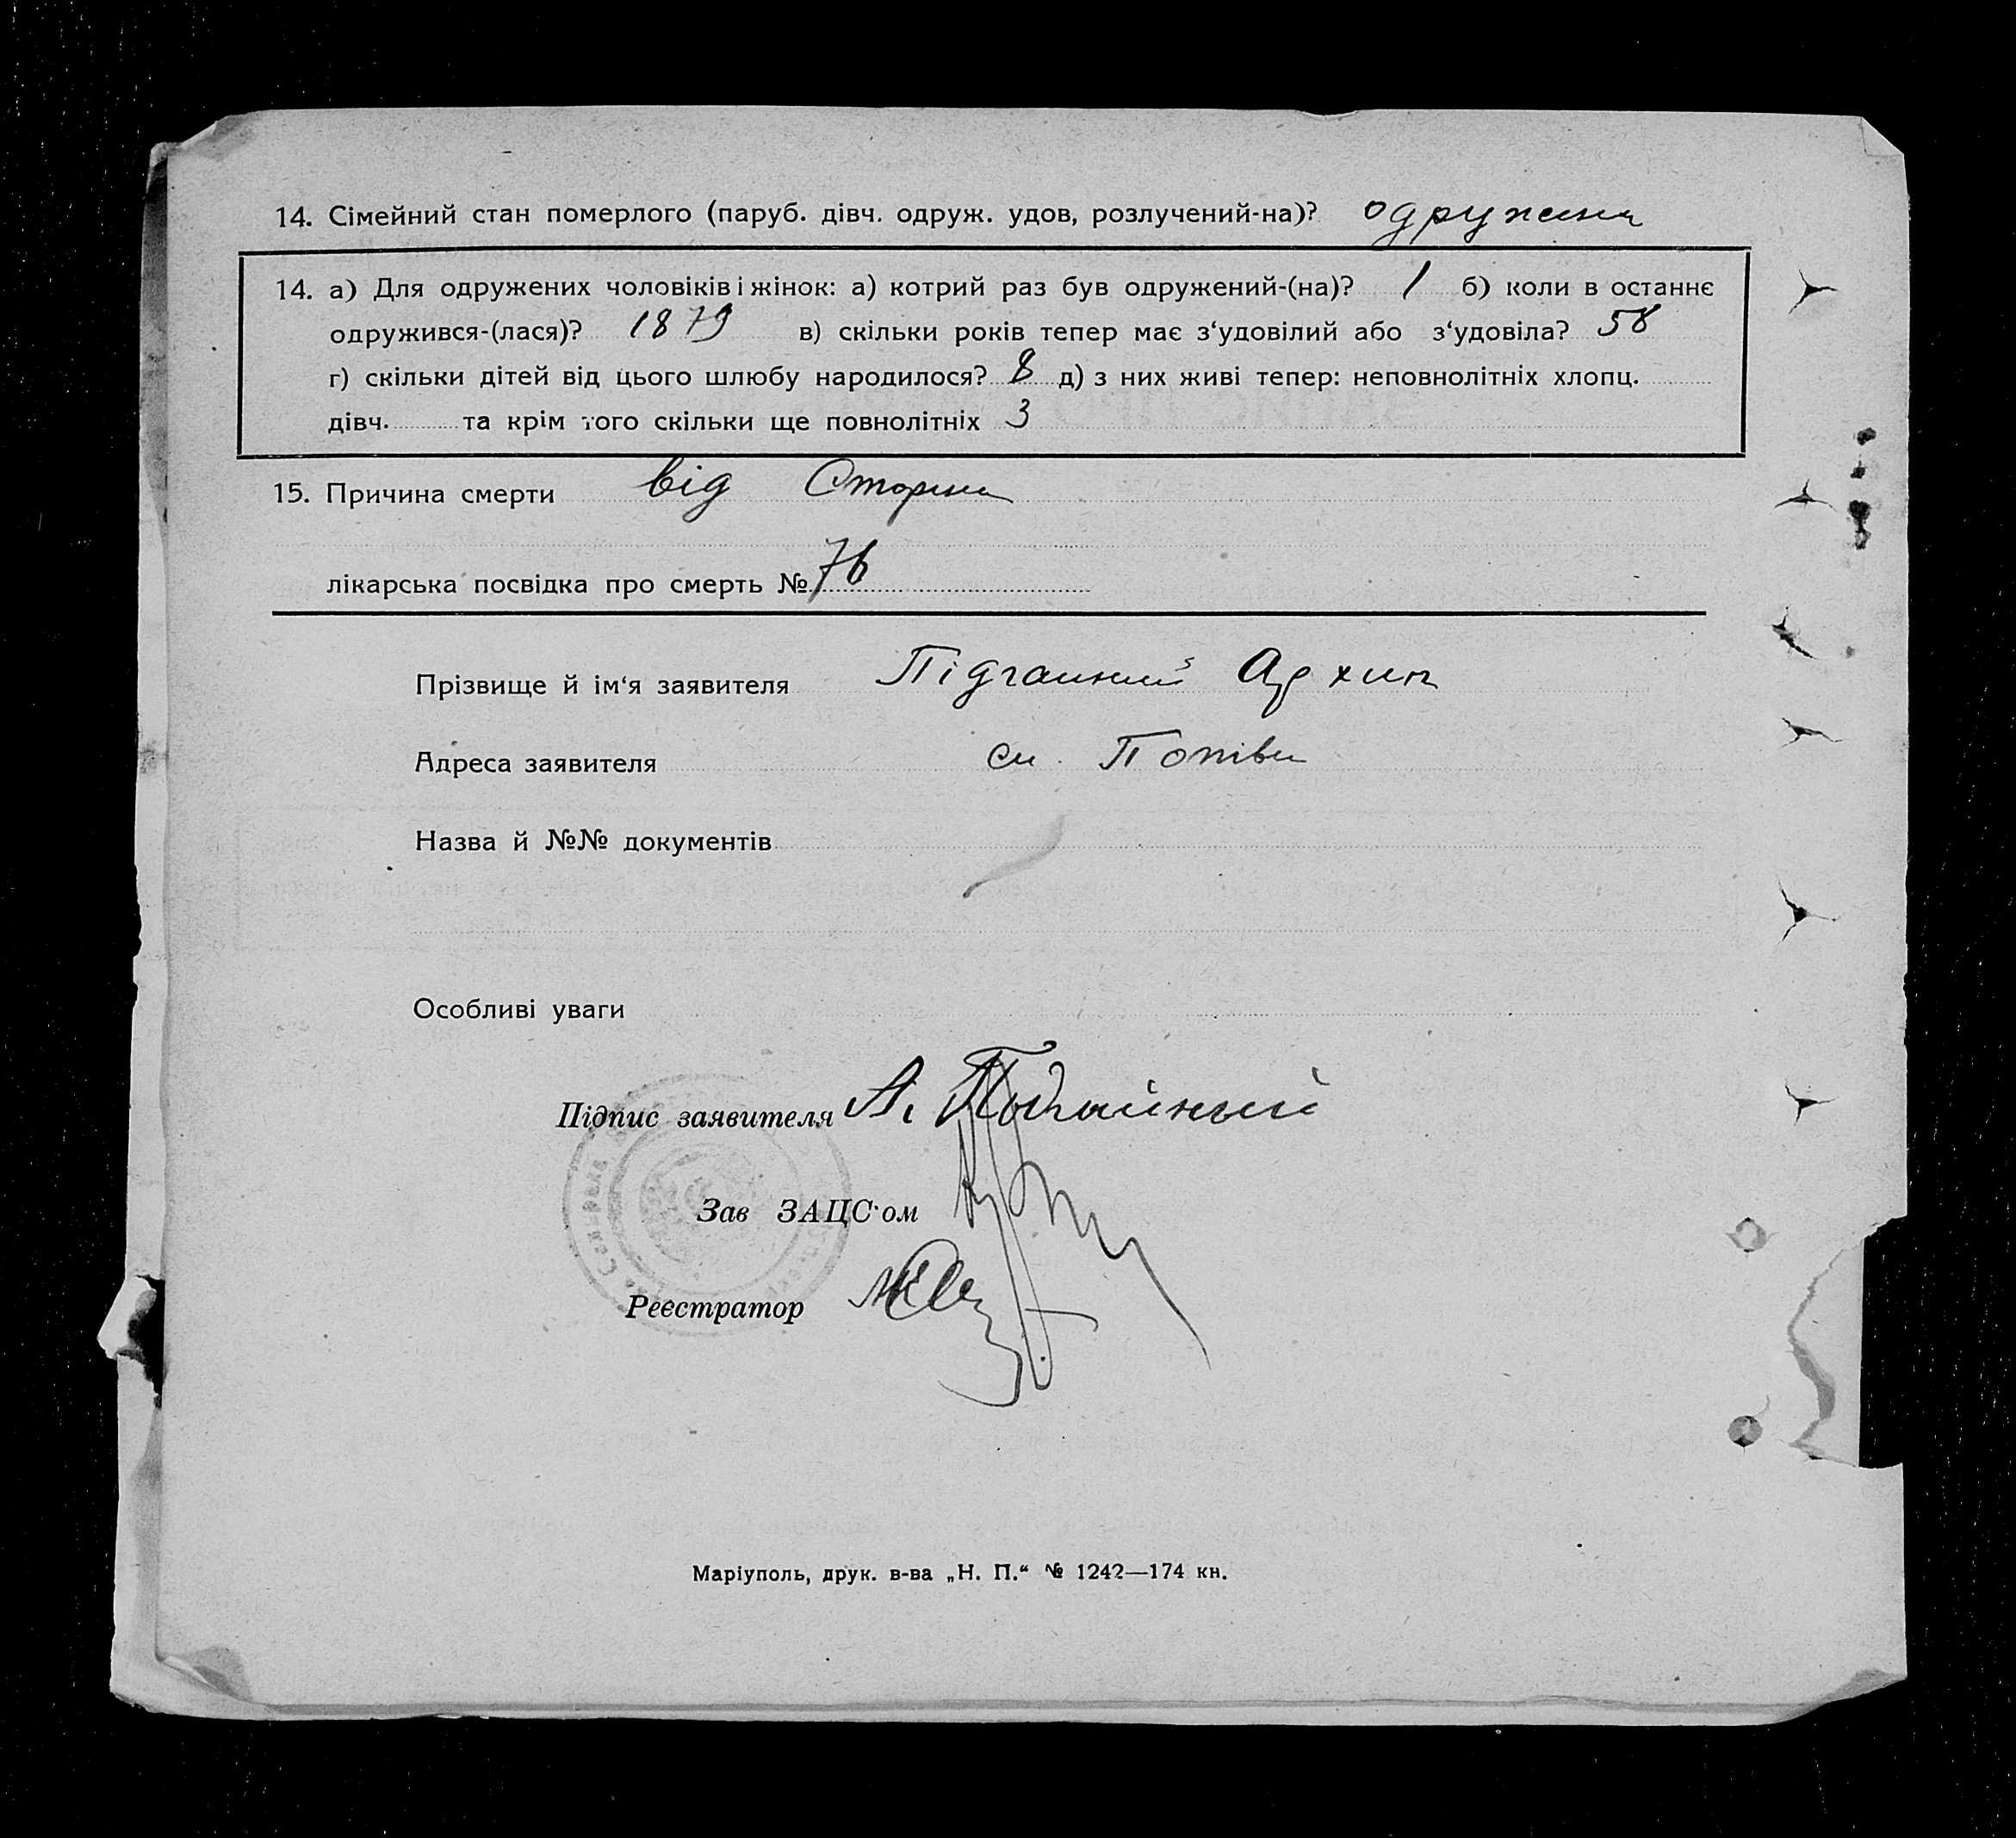 14. Сімейний стан померлого (паруб. дівч. одруж. удов, розлучений-на)? одружена
14. а) Для одружених чоловіків і жінок: а) котрий раз був одружений-(на)? 1 б) коли в останнє
одружився-(лася)? 1879 в) скільки років тепер має з‘удовілий або з‘удовіла? 58
г) скільки дітей від цього шлюбу народилося? 8 д) з них живі тепер: неповнолітніх хлопц.
дівч. та крім того скільки ще повнолітніх 3
15. Причина смерти від
лікарська посвідка про смерть № 76
Прізвище й ім‘я заявителя Підгайний Архип
Адреса заявителя
Назва й №№ документів
Особливі уваги
Підпис заявителя А. Подгайный
Зав ЗАЦС‘ом
Реєстратор
Маріуполь, друк. в-ва „Н. П.“ № 1242—174 кн.